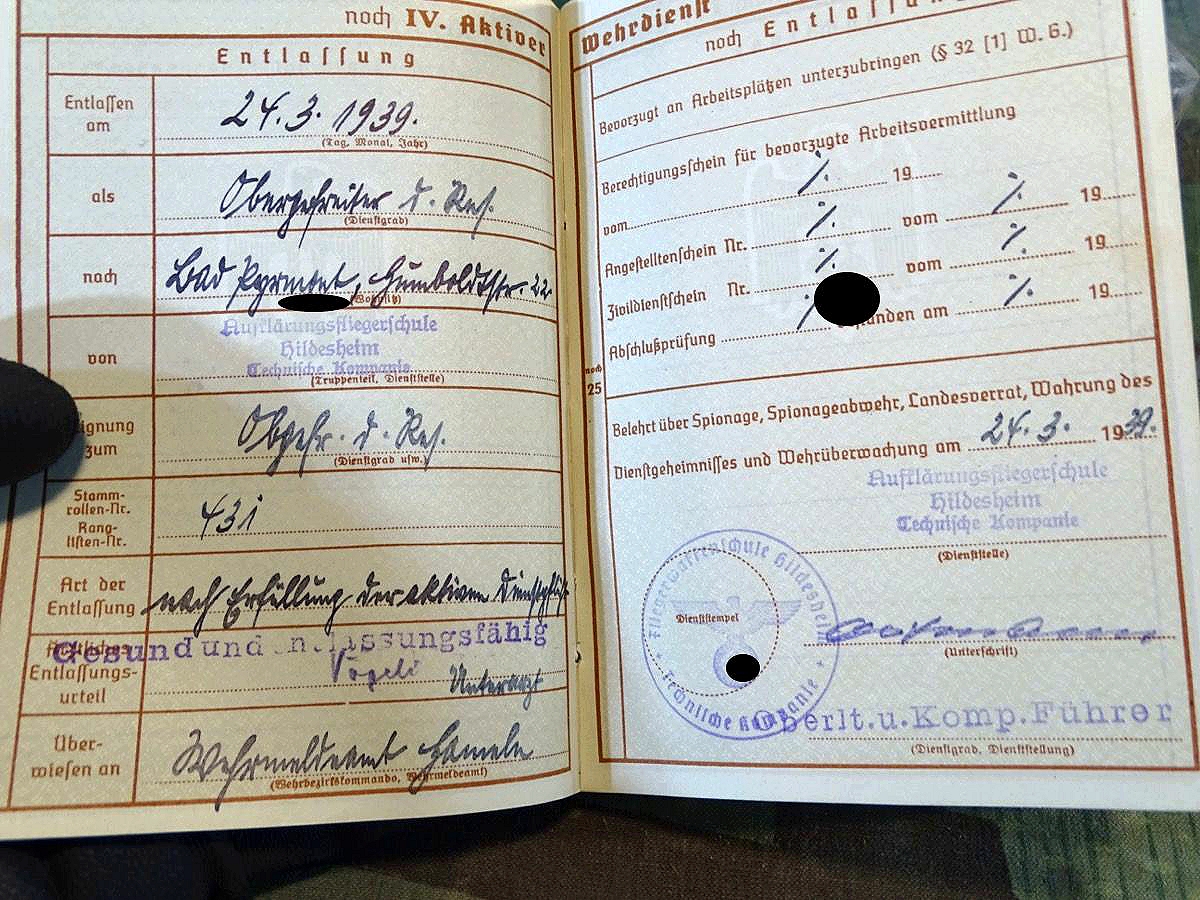 noch IV. Aktiver
Entlassung
Entlassen am 24.3.1939.
(Tag, Monat, Jahr)
als Obergefreiter d. Res.
(Dienstgrad)
nach Bad Pyrmont, Humboldtstr. 22
von Aufklärungsfliegerschule
Hildesheim
Technische Kompanie
(Truppenteil, Dienststelle)
Eignung zum Obgefr. d. Res.
(Dienstgrad usw.)
Stamm-
rollen-Nr.
Rang-
listen-Nr.
431
Art der
Entlassung nach Erfüllung der aktiven Dienstpflicht
Gesund und entlassungsfähig
Entlassungs-
urteil
Unterarzt
Über-
wiesen an Wehrmeldeamt Hameln
(Wehrbezirkskommando, Wehrmeldeamt)
Wehrdienst
noch Entlassung
Bevorzugt an Arbeitsplätzen unterzubringen (§ 32 [1] W. G.)
Berechtigungsschein für bevorzugte Arbeitsvermittlung
vom ./. 19
Angestelltenschein Nr. ./. vom ./. 19
Zivildienstschein Nr. ./. vom ./. 19
Abschlußprüfung ./. am ./. 19
noch
25
Belehrt über Spionage, Spionageabwehr, Landesverrat, Wahrung des
Dienstgeheimnisses und Wehrüberwachung am 24.3. 1939.
Aufklärungsfliegerschule
Hildesheim
Technische Kompanie
(Dienststelle)
Fliegerwaffenschule Hildesheim
Technische Kompanie
Dienststempel
(Unterschrift)
Oberlt.u.Komp.Führer
(Dienstgrad, Dienststellung)